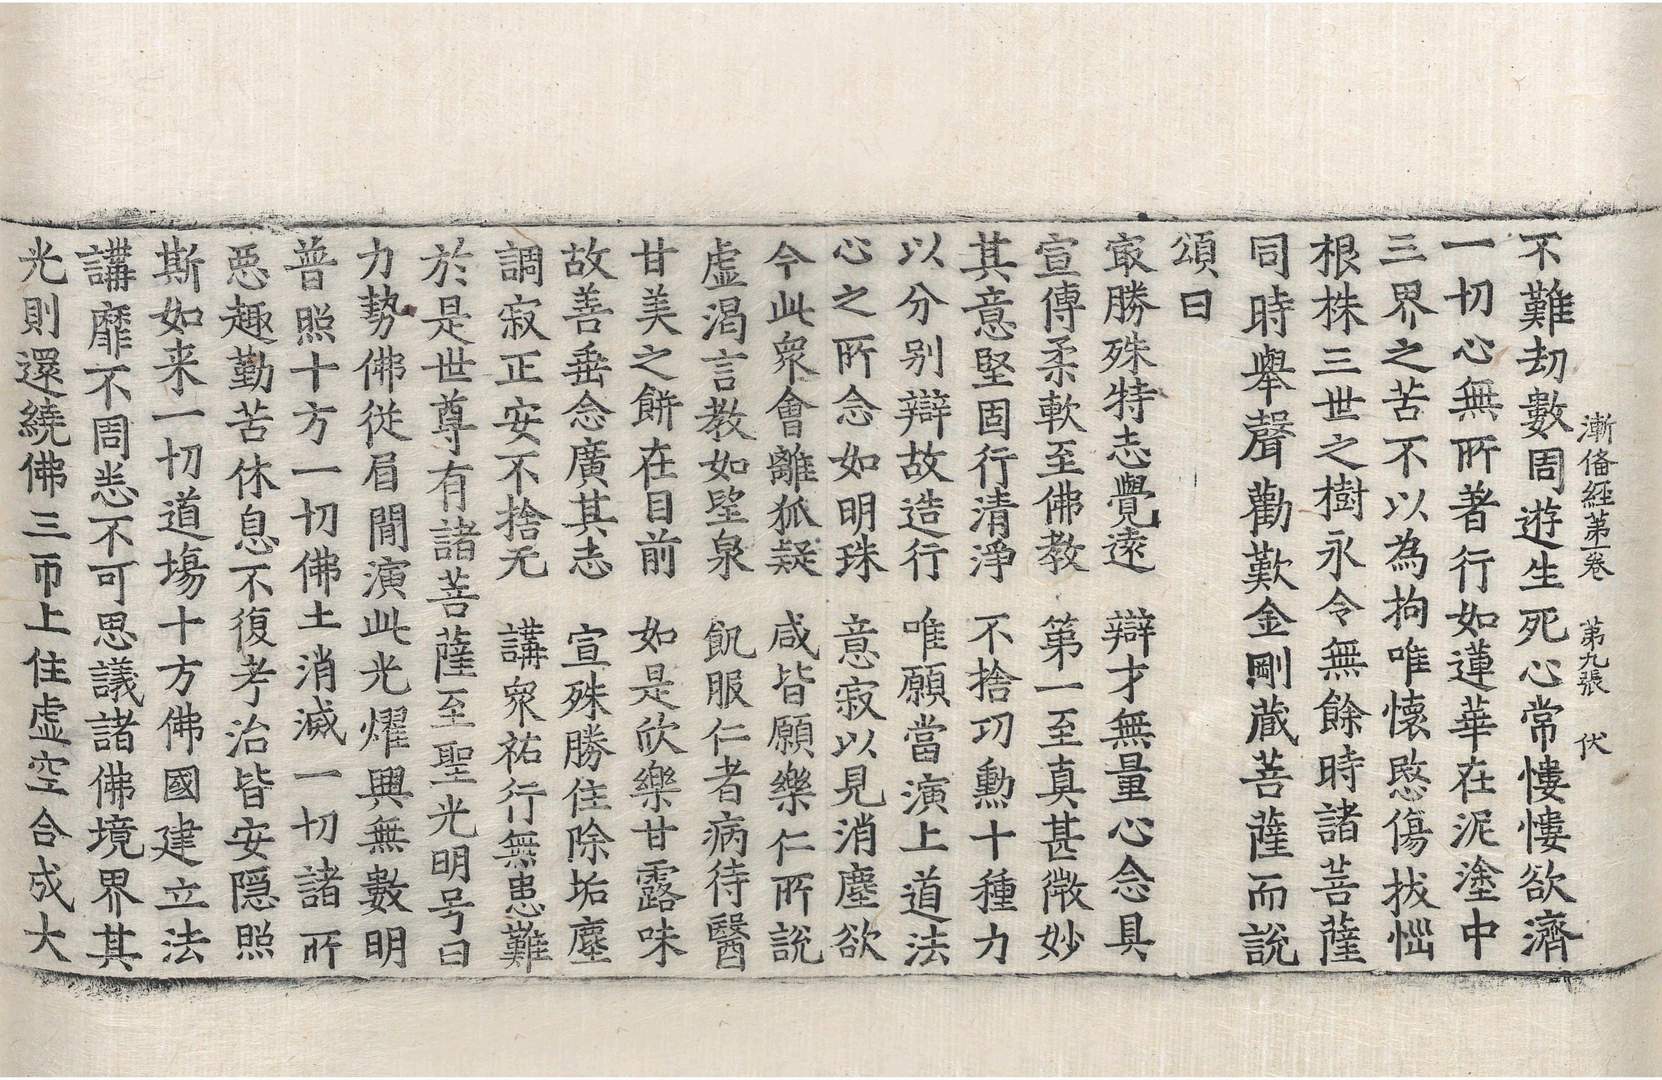 漸俻經第一卷　第九張　伏
不難劫數周遊生死心常悽悽欲濟
一切心無所著行如蓮華在泥塗中
三界之苦不以為拘唯懷愍傷拔
根株三世之樹永令無餘時諸菩薩
同時舉聲勸歎金剛藏菩薩而說
頌曰
㝡勝殊特志覺遠　辯才無量心念具
宣傳柔軟至佛教　第一至真甚微妙
其意堅固行清淨　不捨功勳十種力
以分別辯故造行　唯願當演上道法
心之所念如明珠　意寂以見消塵欲
今此衆會離狐疑　咸皆願樂仁所說
虛渴言教如望泉　飢服仁者病待醫
甘美之餅在目前　如是欣樂甘露味
故善垂念廣其志　宣殊勝住除垢塵
調寂正安不捨无　講衆祐行無患難
於是世尊有諸菩薩至聖光明号曰
力勢佛從眉間演此光耀興無數明
普照十方一切佛土消滅一切諸所
惡趣勤苦休息不復考治皆安隱照
斯如来一切道場十方佛國建立法
講靡不周悉不可思議諸佛境界其
光則還繞佛三帀上住虛空合成大